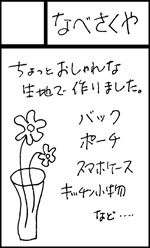 なべさくや
ちょっとおしゃれな
生地で作りました。
バック
ポーチ
スマホケース
キッチン小物
など‥‥